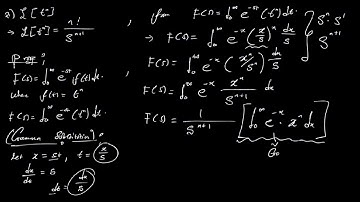 2) L[tⁿ]
→ L[tⁿ] = n! / Sⁿ⁺¹
proof:
F(s) = ∫₀^∞ e^-st f(t) dt.
when f(t) = tⁿ
F(s) = ∫₀^∞ e^-st (tⁿ) dt.
(Gamma Substitution)
let x = st, t = x/s
dx/dt = s
dt = dx/s
from F(s) = ∫₀^∞ e^-st (tⁿ) dt.
→ F(s) = ∫₀^∞ e^-x (x/s)ⁿ dx/s
F(s) = ∫₀^∞ e^-x (xⁿ/sⁿ) dx/s
F(s) = ∫₀^∞ e^-x xⁿ/Sⁿ⁺¹ dx
F(s) = 1/Sⁿ⁺¹ [∫₀^∞ e^-x · xⁿ dx]
Sⁿ · S¹
Sⁿ⁺¹